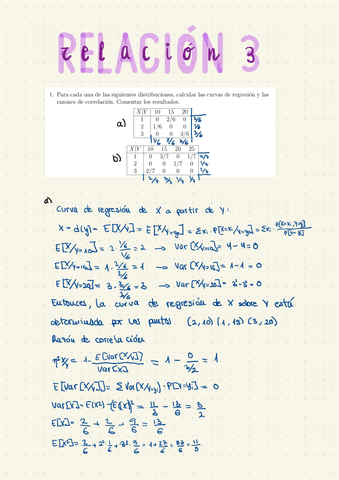 RELACIÓN 3
relación 3
1. Para cada una de las siguientes distribuciones, calcular las curvas de regresión y las
razones de correlación. Comentar los resultados.
a)
X|Y 10 15 20
1 0 2/6 0 2/6
2 1/6 0 0 1/6
3 0 0 3/6 3/6
1/6 2/6 3/6
b)
X|Y 10 15 20 25
1 0 3/7 0 1/7 4/7
2 0 0 1/7 0 1/7
3 2/7 0 0 0 2/7
2/7 3/7 1/7 1/7
a)
Curva de regresión de X a partir de Y:
X = d(y) = E[X/Y] = E[X/Y=y] = Σxᵢ · P[X=xᵢ/Y=y] = Σxᵢ · P[X=xᵢ, Y=y] / P[Y=y]
E[X/Y=10] = 2 · 1/6 / 1/6 = 2 → Var[X/Y=10] = 4-4=0
E[X/Y=15] = 1 · 2/6 / 2/6 = 1 → Var[X/Y=15] = 1-1=0
E[X/Y=20] = 3 · 3/6 / 3/6 = 3 → Var[X/Y=20] = 3²-3²=0
Entonces, la curva de regresión de X sobre Y está
determinada por los puntos (2,10) (1,15) (3,20)
Razón de correlación
η²X/Y = 1 - E[Var[X/Y]] / Var[X] = 1 - 0 / 3/2 = 1
E[Var[X/Y]] = Σ Var[X/Y=y] · P[Y=y] = 0
Var[X] = E[X²] - (E[X])² = 11/3 - 13/6 = 3/2
E[X] = 2/6 + 2/6 + 9/6 = 13/6
E[X²] = 2/6 + 2² 1/6 + 3² 3/6 = 1 + 27/6 = 33/6 = 11/3